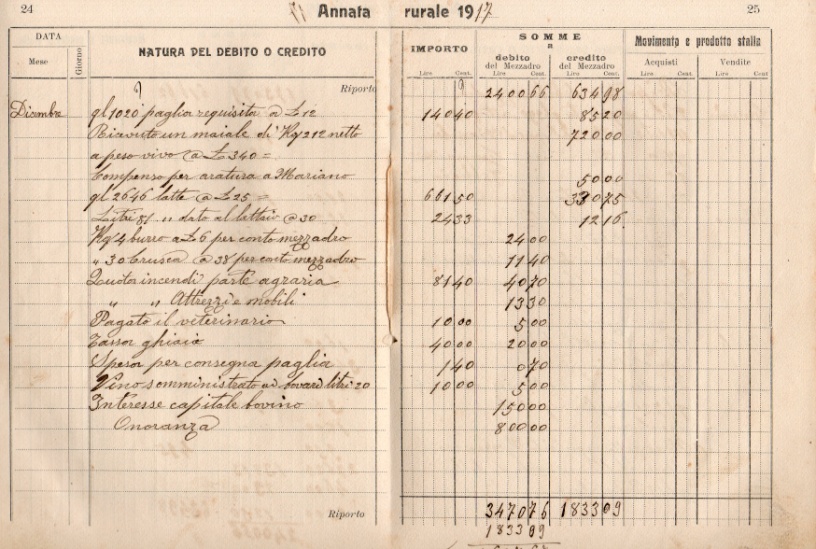 24 Annata rurale 1917 25
DATA NATURA DEL DEBITO O CREDITO IMPORTO SOMME a Movimento e prodotto stalla
Mese Giorno debito del Mezzadro credito del Mezzadro Acquisti Vendite
Lire Cent. Lire Cent. Lire Cent. Lire Cent. Lire Cent.
Riporto 2400 66 634 98
Dicembre ql 1020 paglia requisita a £ 12 140 40 85 20
Ricavato un maiale di Kg 212 netto 720 00
a peso vivo @ £ 340 =
Compenso per aratura a Mariano 50 00
ql 2646 latte @ £ 25 = 661 50 330 75
Litri 81 " dato al lattaio @ 30 24 33 12 16
Kg 4 burro a £ 6 per conto mezzadro 24 00
" 30 crusca @ 38 per conto mezzadro 11 40
Quota incendi parte agraria 81 40 40 70
" " Attrezzi e mobili 13 30
Pagato il veterinario 10 00 5 00
Tassa ghiaia 40 00 20 00
Spesa per consegna paglia 1 40 0 70
Vino somministrato ai bovari litri 20 10 00 5 00
Interesse capitale bovino 150 00
Onoranza 800 00
Riporto 3470 76 1833 09
1833 09